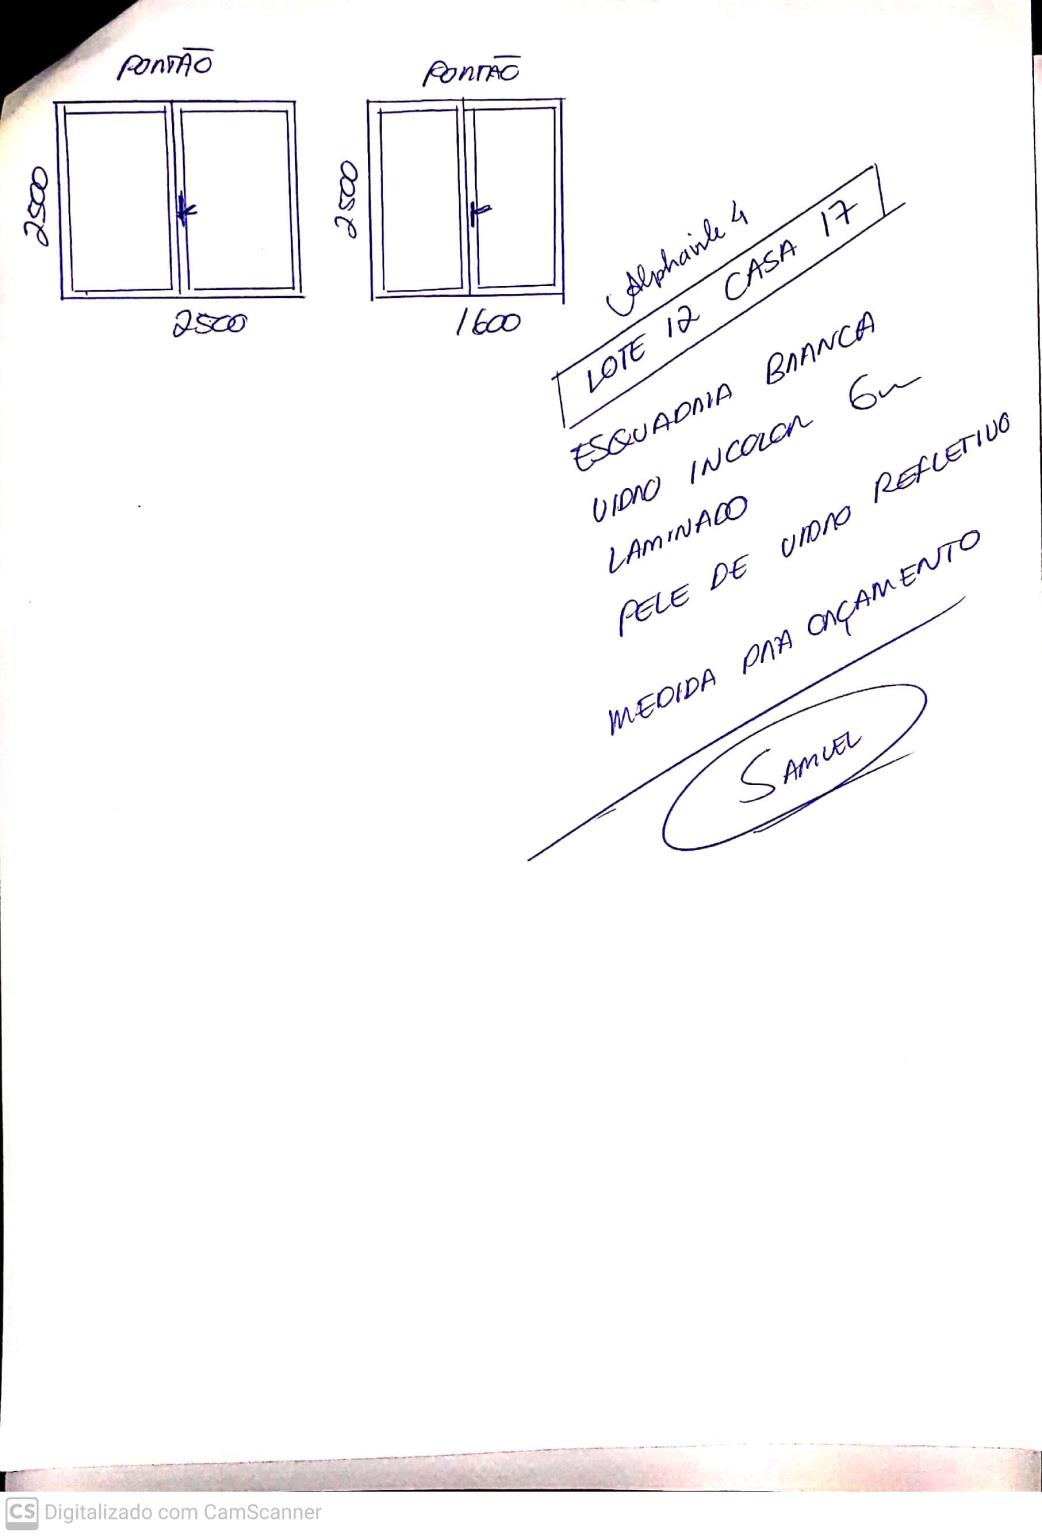 PORTÃO
PORTÃO
2500
2500
2500
1600
Alphavile 4
LOTE 12 CASA 17
ESQUADRIA BRANCA
VIDRO INCOLOR 6m
LAMINADO
PELE DE VIDRO REFLETIVO
MEDIDA PRA ORÇAMENTO
SAMUEL
CS Digitalizado com CamScanner